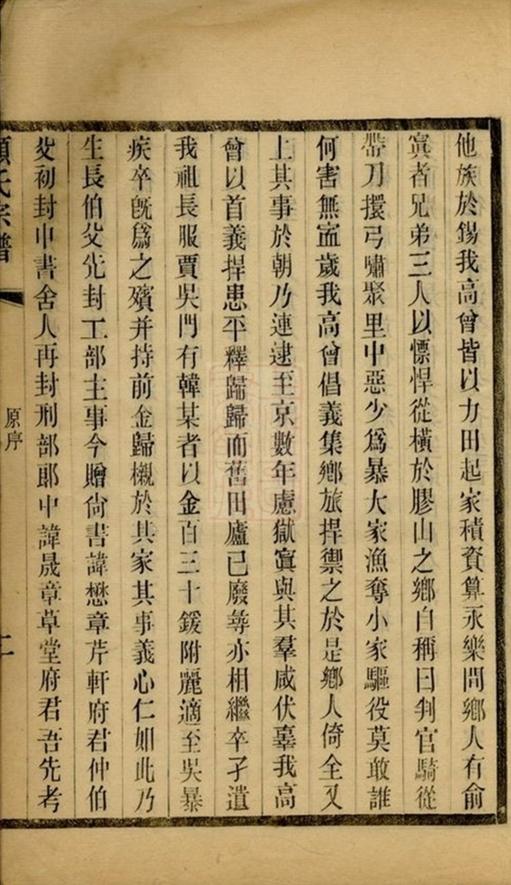 他族於錫我高曾皆以力田起家積資算永樂間鄉人有俞
寘者兄弟三人以慓悍從橫於膠山之鄉自稱曰判官騎從
帶刀擐弓嘯聚里中惡少爲暴大家漁奪小家驅役莫敢誰
何害無寍歲我高曾倡義集鄉旅捍禦之於是鄉人倚全又
上其事於朝乃連逮至京數年慮獄寘與其羣咸伏辜我高
曾以首義捍患平釋歸歸而舊田廬已廢䓁亦相繼卒孑遺
我祖長服賈吳門有韓某者以金百三十鍰附麗適至吳暴
疾卒旣爲之殯并持前金歸櫬於其家其事義心仁如此乃
生長伯父先封工部主事今贈尙書諱懋章芹軒府君仲伯
父初封中書舍人再封刑部郎中諱晟章草堂府君吾先考
顧氏宗譜
原序
二